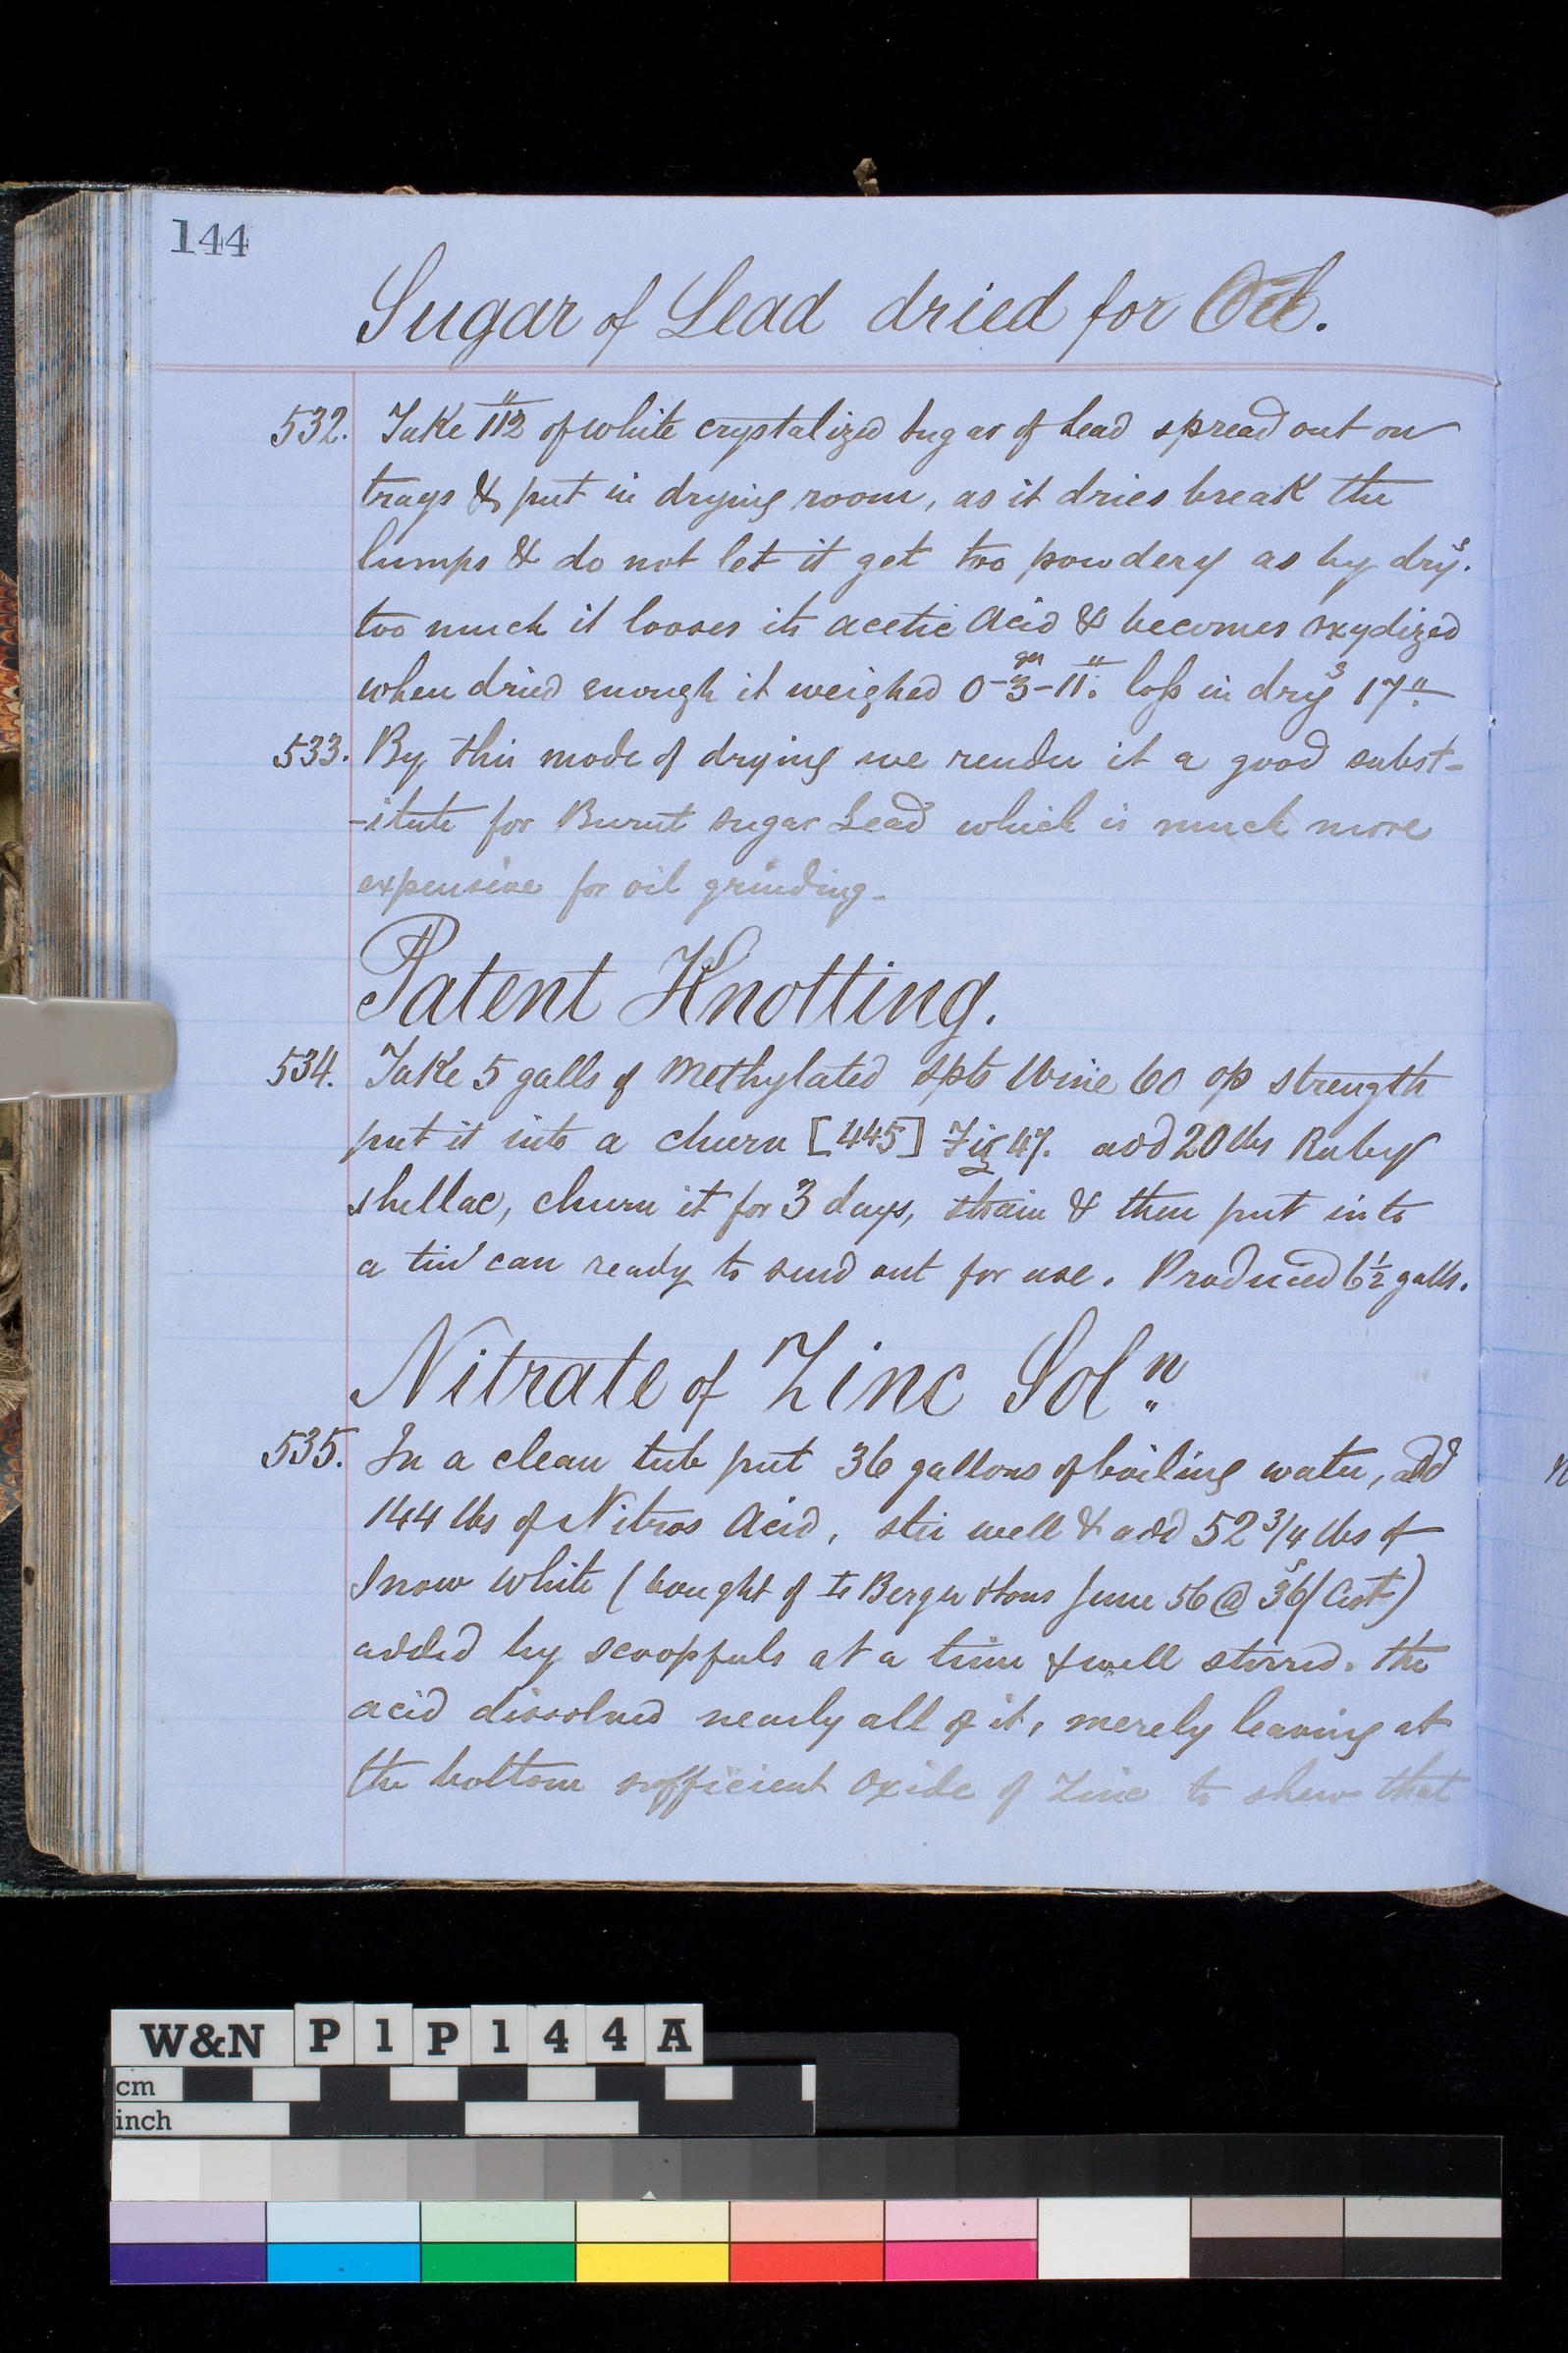 144
Sugar of Lead dried for Oil.
532. Take 112" of white crystalized Sugar of Lead spread out on
trays & put in drying room, as it dries break the
lumps & do not let it get too powdery as by dryg.
too much it looses its acetic Acid & becomes oxydized
when dried enough it weighed 0-3qr-11". loss in dryg 17".
533. By this mode of drying we render it a good subst-
-itute for Burnt sugar Lead which is much more
expensive for oil grinding-
Patent Knotting.
534. Take 5 galls of Methylated Spts Wine 60 op strength
put it into a churn [445] Fig 47. add 20 lbs Ruby
shellac, churn it for 3 days, strain & then put into
a tin can ready to send out for use. Produced 6½ galls.
Nitrate of Zinc Soln.
535. In a clean tub put 36 gallons of boiling water, add
144 lbs of Nitros Acid, stir well & add 52 3/4 lbs of
Snow White (bought of Berger & Sons June 56 @ 36/ Cwt)
added by scoopfuls at a time & well stirred. the
acid dissolved nearly all of it, merely leaving at
the bottom sufficient Oxide of Zinc to shew that
W&N P1P144A
cm
inch